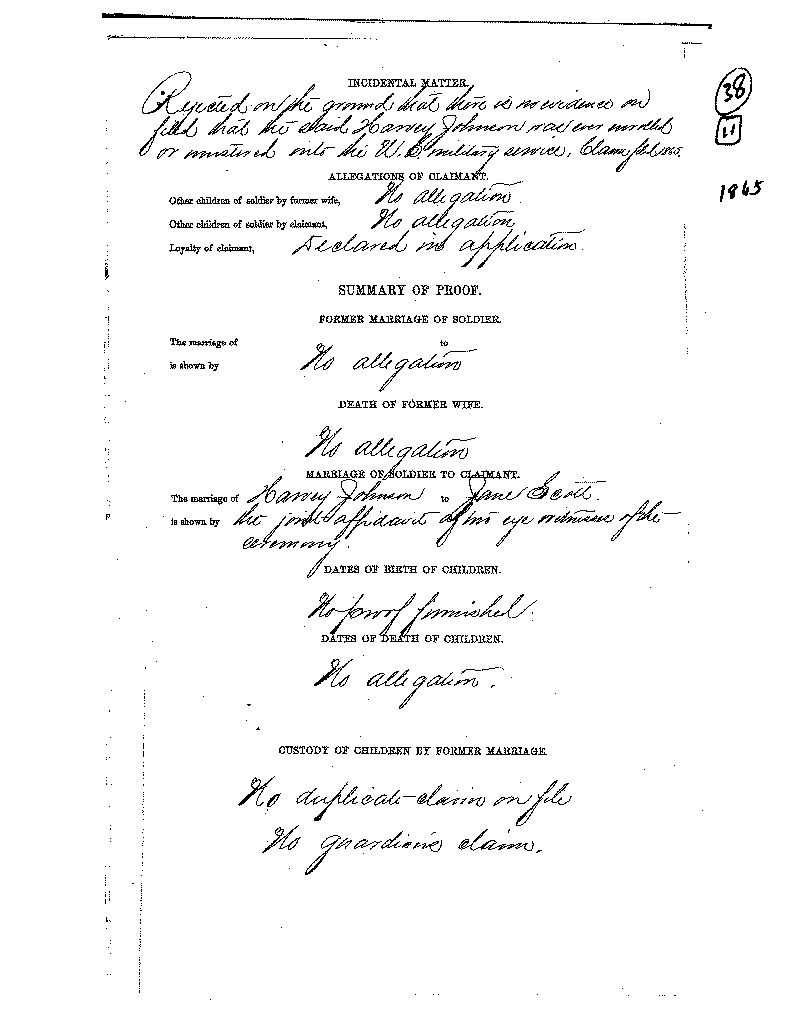 INCIDENTAL MATTER.
38
Rejected on the ground that there is no evidence on
filed that the said Harvey Johnson was ever enrolled
11
or mustered into the U.S. military service. Claim filed 1865.
ALLEGATIONS OF CLAIMANT.
1865
Other children of soldier by former wife, No allegation.
Other children of soldier by claimant, No allegation,
Loyalty of claimant, Declared in application.
SUMMARY OF PROOF.
FORMER MARRIAGE OF SOLDIER.
The marriage of to
is shown by No allegation
DEATH OF FORMER WIFE.
No allegation
MARRIAGE OF SOLDIER TO CLAIMANT.
The marriage of Harvey Johnson to Jane Scott.
is shown by the joint affidavit of two eye witnesses of the
ceremony.
DATES OF BIRTH OF CHILDREN.
No proof furnished.
DATES OF DEATH OF CHILDREN.
No allegation.
CUSTODY OF CHILDREN BY FORMER MARRIAGE.
No duplicate claim on file
No guardian's claim.